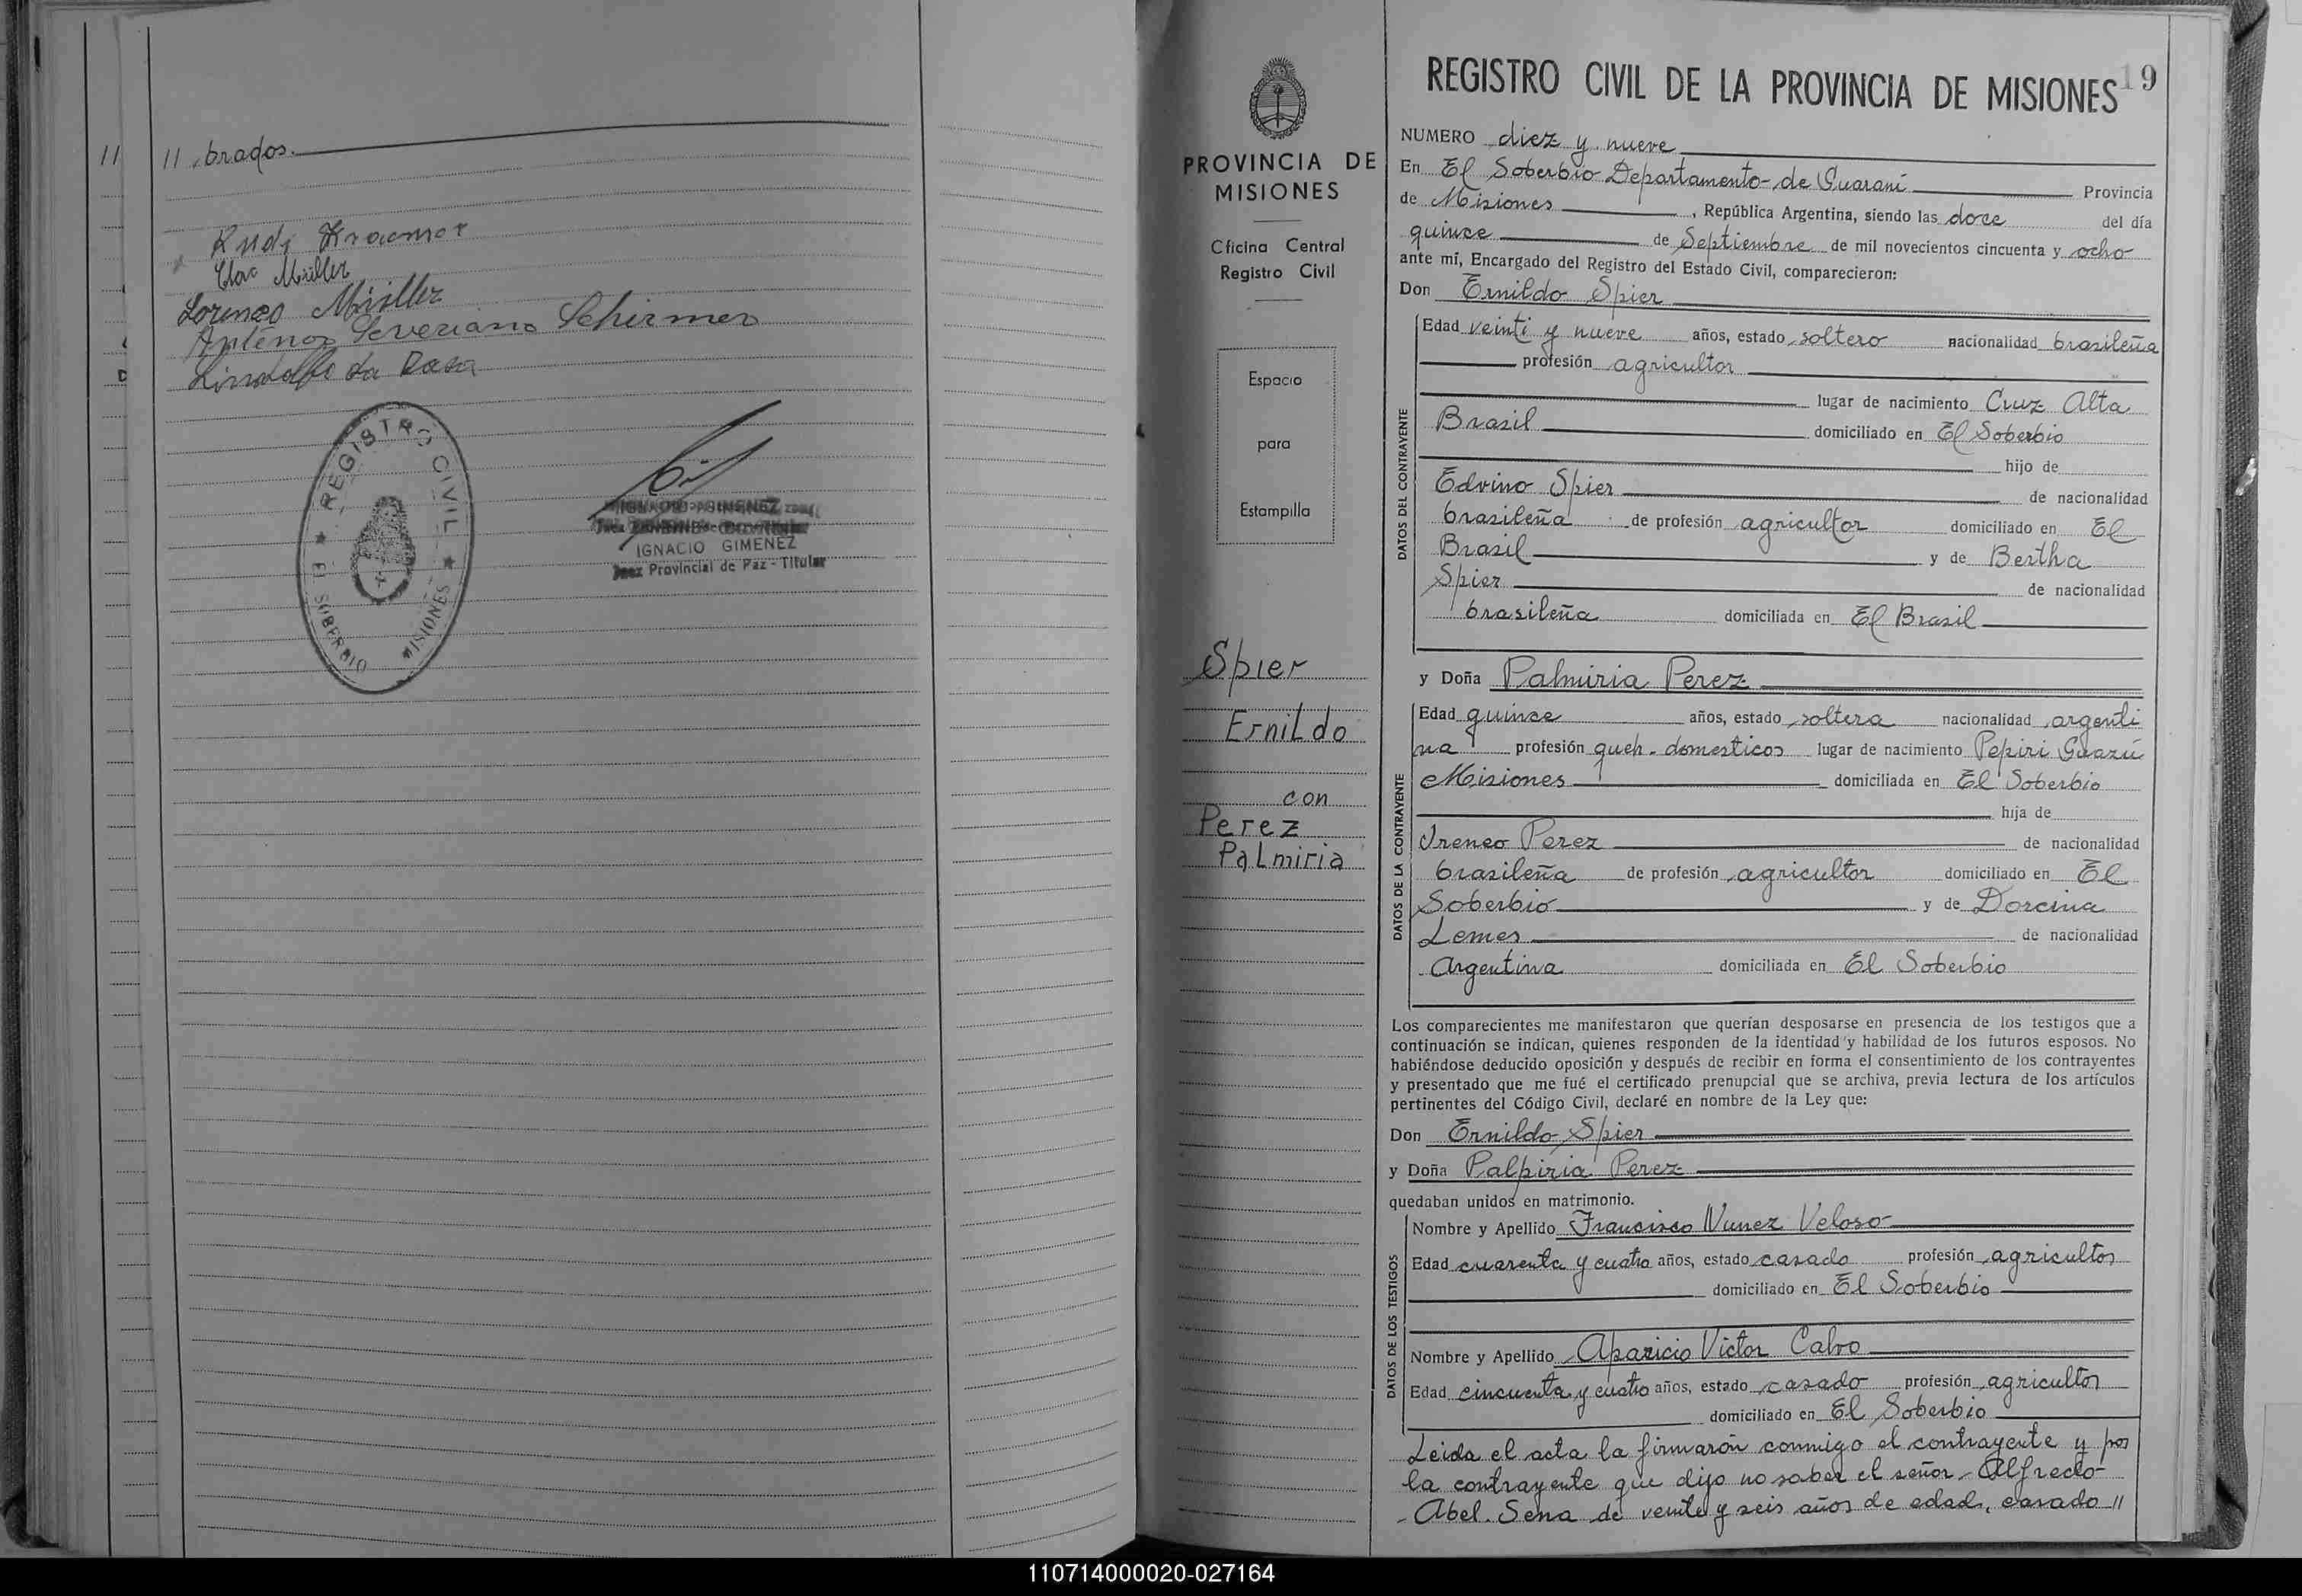 11 11 brados.
Rudi Kraemer
Müller
Lorenzo Müller
Antenor Severiano Schirmer
Lindolfo da Rosa
REGISTRO CIVIL
EL SOBERBIO MISIONES
IGNACIO GIMENEZ
Juez Provincial de Paz - Titular
PROVINCIA DE
MISIONES
Oficina Central
Registro Civil
Espacio
para
Estampilla
Spier
Ernildo
con
Perez
Palmiria
REGISTRO CIVIL DE LA PROVINCIA DE MISIONES 19
NUMERO diez y nueve
En El Soberbio Departamento de Guaraní Provincia
de Misiones, República Argentina, siendo las doce del día
quince de Septiembre de mil novecientos cincuenta y ocho
ante mí, Encargado del Registro del Estado Civil, comparecieron:
Don Ernildo Spier
DATOS DEL CONTRAYENTE
Edad veinti y nueve años, estado soltero nacionalidad brasileña
profesión agricultor
lugar de nacimiento Cruz Alta
Brasil domiciliado en El Soberbio
hijo de
Edvino Spier de nacionalidad
brasileña de profesión agricultor domiciliado en El
Brasil y de Bertha
Spier de nacionalidad
brasileña domiciliada en El Brasil
y Doña Palmiria Perez
DATOS DE LA CONTRAYENTE
Edad quince años, estado soltera nacionalidad argenti
na profesión queh. domesticos lugar de nacimiento Pepiri Guazú
Misiones domiciliada en El Soberbio
hija de
Ireneo Perez de nacionalidad
brasileña de profesión agricultor domiciliado en El
Soberbio y de Dorcina
Lemes de nacionalidad
Argentina domiciliada en El Soberbio
Los comparecientes me manifestaron que querían desposarse en presencia de los testigos que a
continuación se indican, quienes responden de la identidad y habilidad de los futuros esposos. No
habiéndose deducido oposición y después de recibir en forma el consentimiento de los contrayentes
y presentado que me fué el certificado prenupcial que se archiva, previa lectura de los artículos
pertinentes del Código Civil, declaré en nombre de la Ley que:
Don Ernildo Spier
y Doña Palpiria Perez
quedaban unidos en matrimonio.
DATOS DE LOS TESTIGOS
Nombre y Apellido Francisco Nunez Veloso
Edad cuarenta y cuatro años, estado casado profesión agricultor
domiciliado en El Soberbio
Nombre y Apellido Aparicio Victor Calvo
Edad cincuenta y cuatro años, estado casado profesión agricultor
domiciliado en El Soberbio
Leida el acta la firmarón conmigo el contrayente y por
la contrayente que dijo no saber el señor Alfredo
Abel Sena de veinte y seis años de edad, casado 11
110714000020-027164